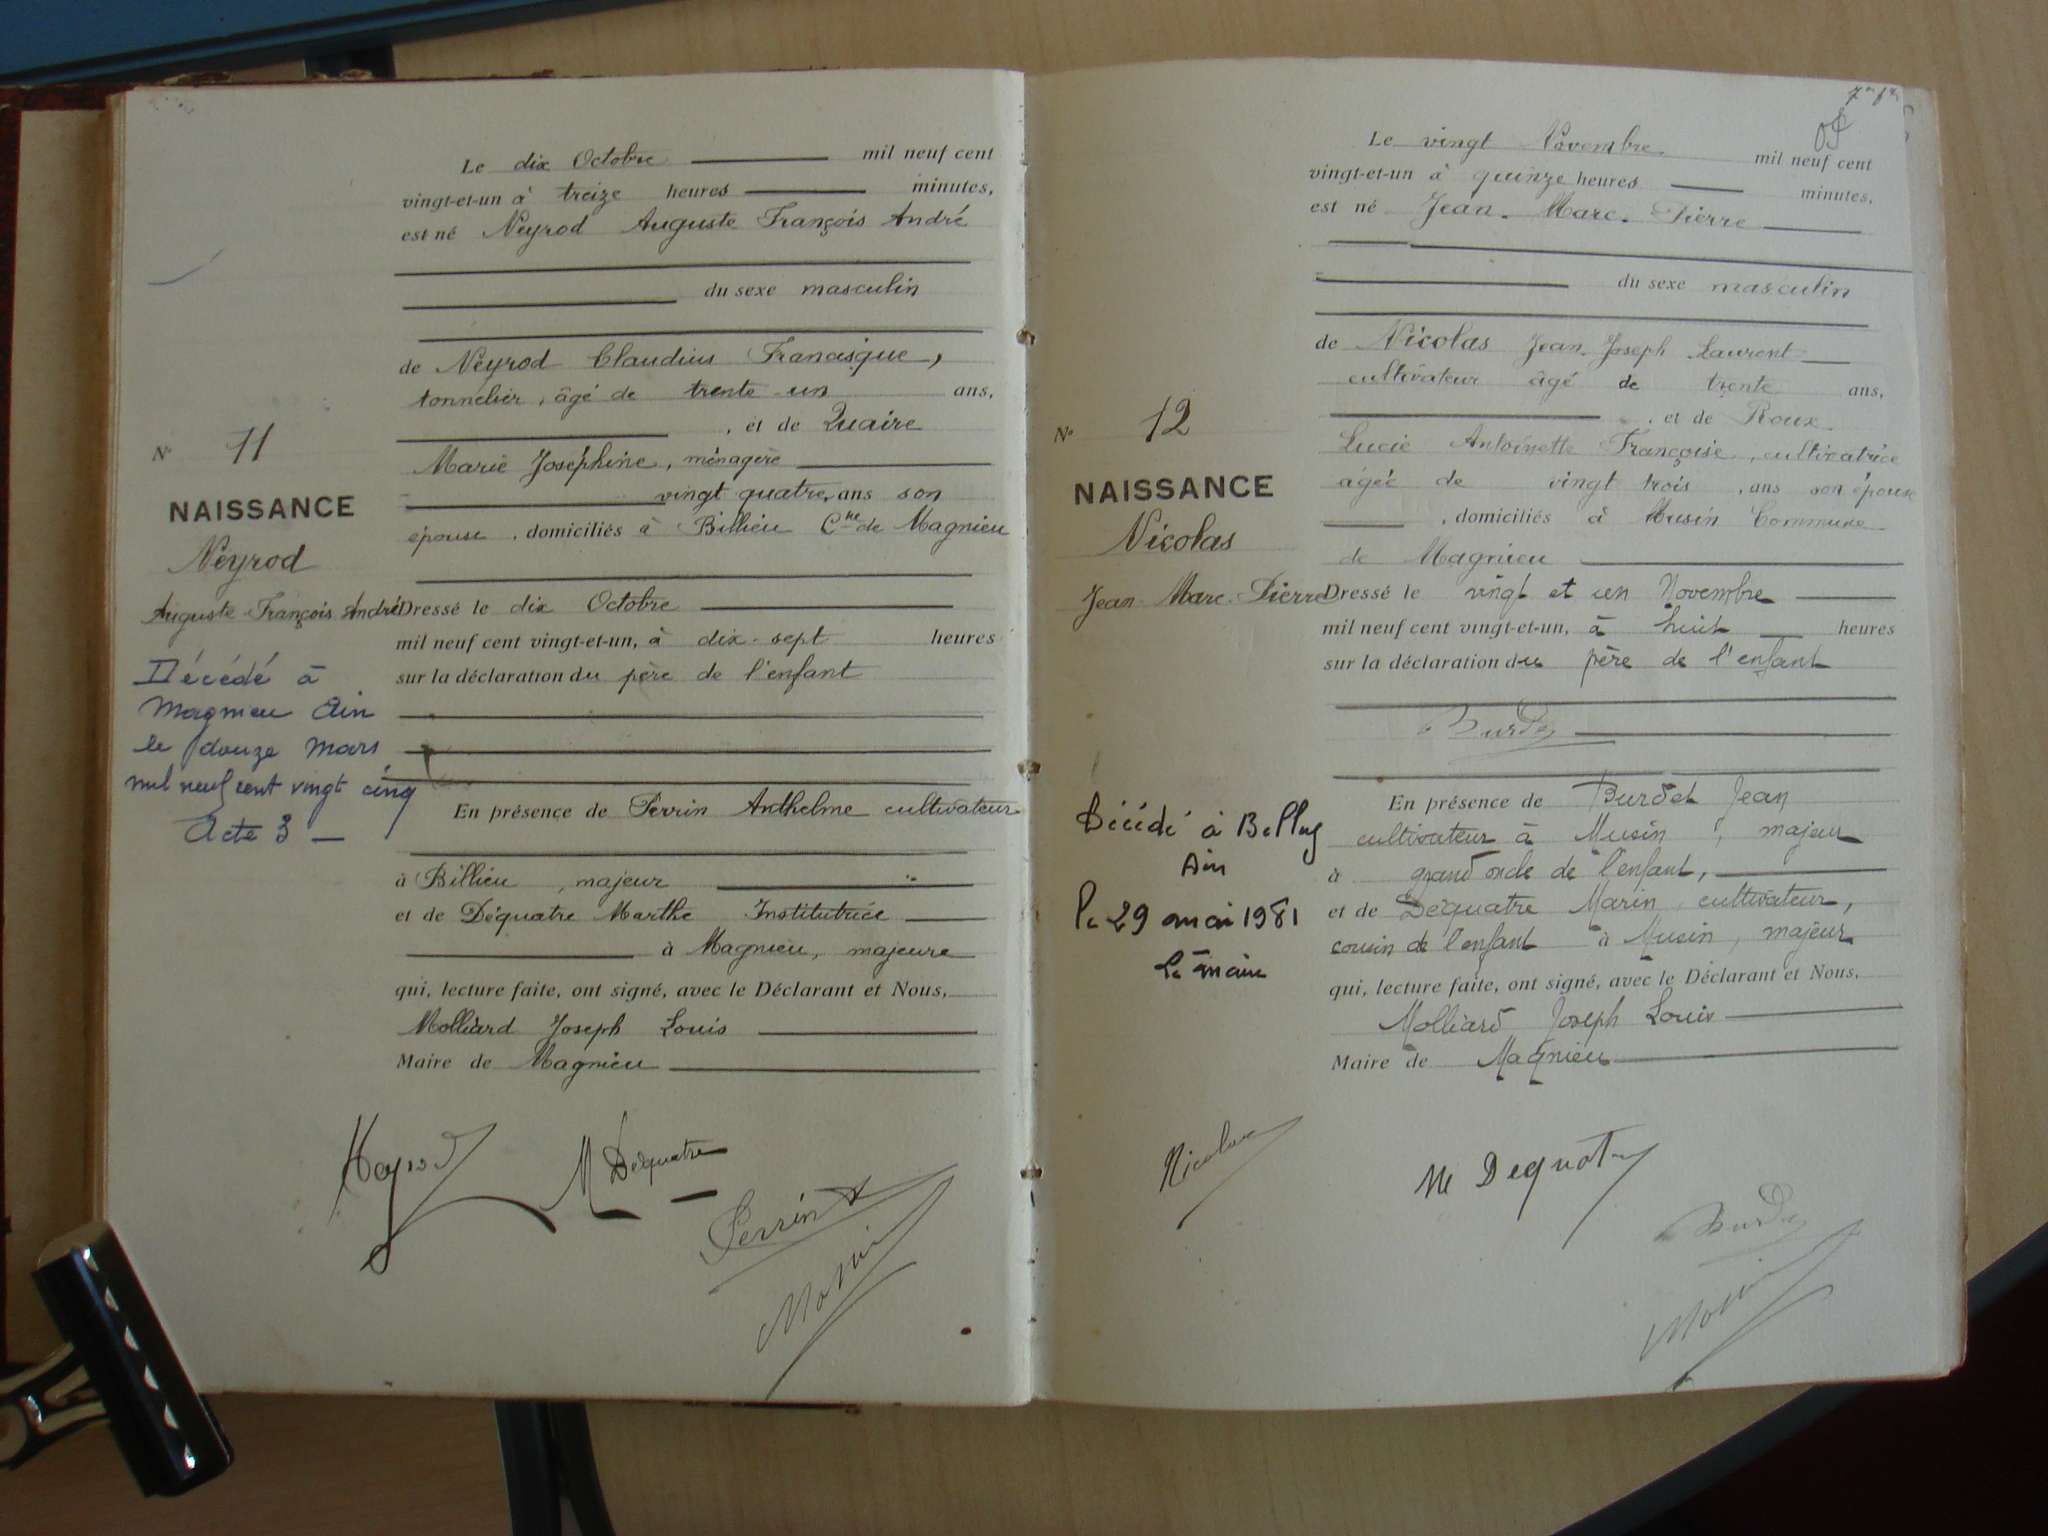 Le dix Octobre mil neuf cent
vingt-et-un à treize heures minutes,
est né Neyrod Auguste François André
du sexe masculin
de Neyrod Claudius Francisque,
tonnelier, âgé de trente-un ans,
, et de Quaire
Marie Joséphine, ménagère
vingt quatre, ans son
épouse, domiciliés à Billieu Cne de Magnieu
Dressé le dix Octobre
mil neuf cent vingt-et-un, à dix-sept heures
sur la déclaration du père de l'enfant
En présence de Perrin Anthelme cultivateur
à Billieu, majeur
et de Déquatre Marthe Institutrice
à Magnieu, majeure
qui, lecture faite, ont signé, avec le Déclarant et Nous,
Molliard Joseph Louis
Maire de Magnieu
N° 11
NAISSANCE
Neyrod
Auguste-François André
Décédé à
Magnieu Ain
le douze Mars
mil neuf cent vingt cinq
Acte 3
Neyrod
M Dequatre
Perrin
Le vingt Novembre mil neuf cent
vingt-et-un à quinze heures minutes,
est né Jean-Marc-Pierre
du sexe masculin
de Nicolas Jean-Joseph Laurent
cultivateur âgé de trente ans,
, et de Roux
Lucie Antoinette Françoise, cultivatrice
âgée de vingt trois, ans son épouse
, domiciliés à Musin Commune
de Magnieu
Dressé le vingt et un Novembre
mil neuf cent vingt-et-un, à huit heures
sur la déclaration du père de l'enfant
Burdet
En présence de Burdet Jean
cultivateur à Musin, majeur
à grand oncle de l'enfant,
et de Déquatre Marin, cultivateur,
cousin de l'enfant à Musin, majeur
qui, lecture faite, ont signé, avec le Déclarant et Nous,
Molliard Joseph Louis
Maire de Magnieu
N° 12
NAISSANCE
Nicolas
Jean-Marc-Pierre
Décédé à Belley
Ain
le 29 mai 1981
Le maire
Nicolas
M Dequatre
Burdet